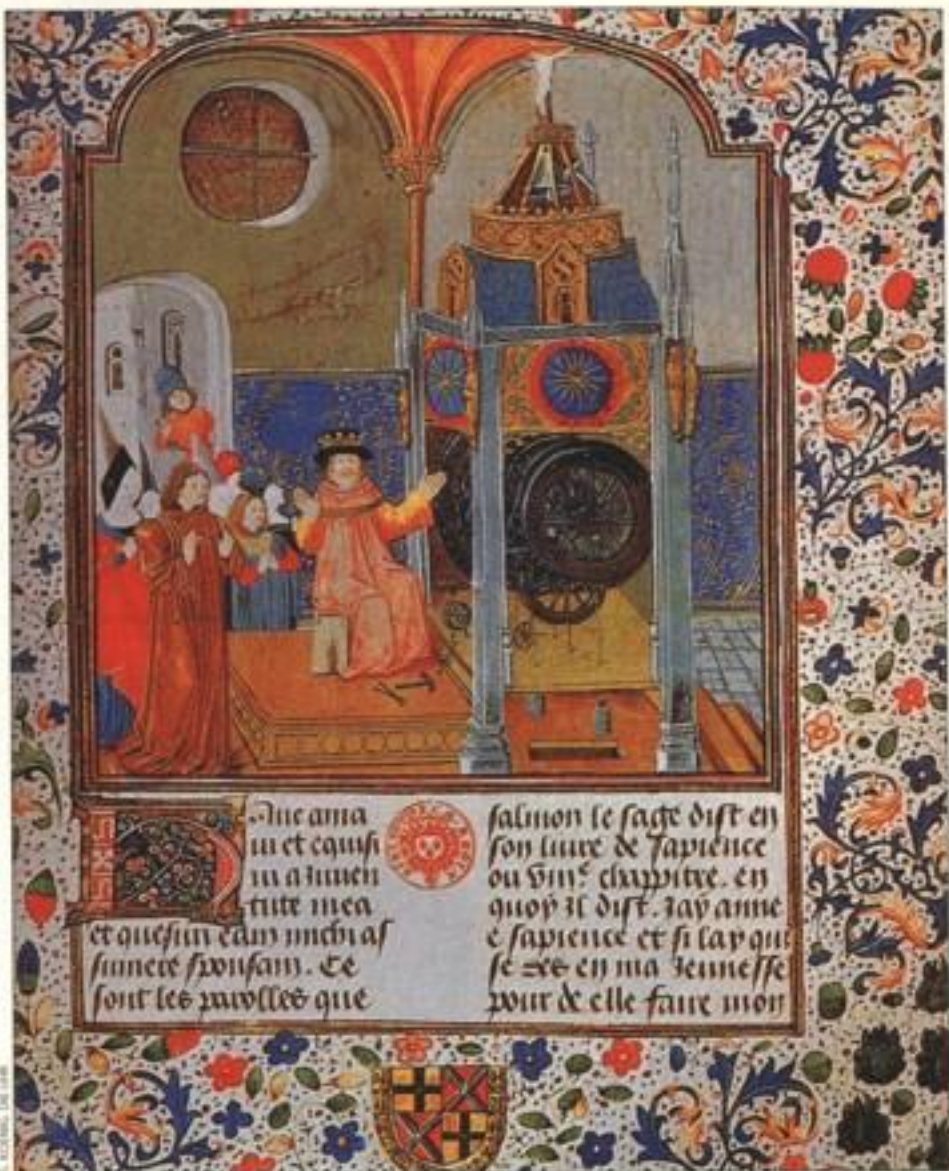 Hanc ama
ui et exquisi
ui a Iuuen
tute mea
et quesiui eam michi as
sumere sponsam. Ce
sont les parolles que
salmon le sage dist en
son liure de Sapience
ou viiiᵉ chappitre. en
quoy Il dist. Jay amme
e sapience et si lay qui
se des en ma Jeunesse
pour de elle faire mon